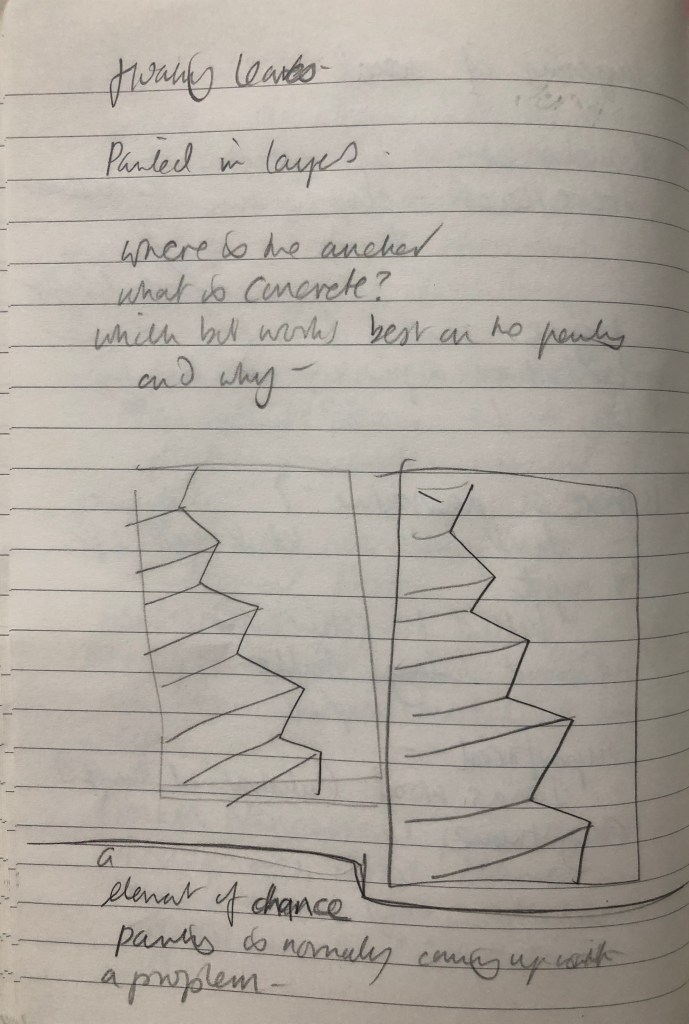 Painted in layers.
where is the anchor
what is concrete?
which bit works best on the painting
and why -
a
element of chance
painting is normally coming up with
a problem -